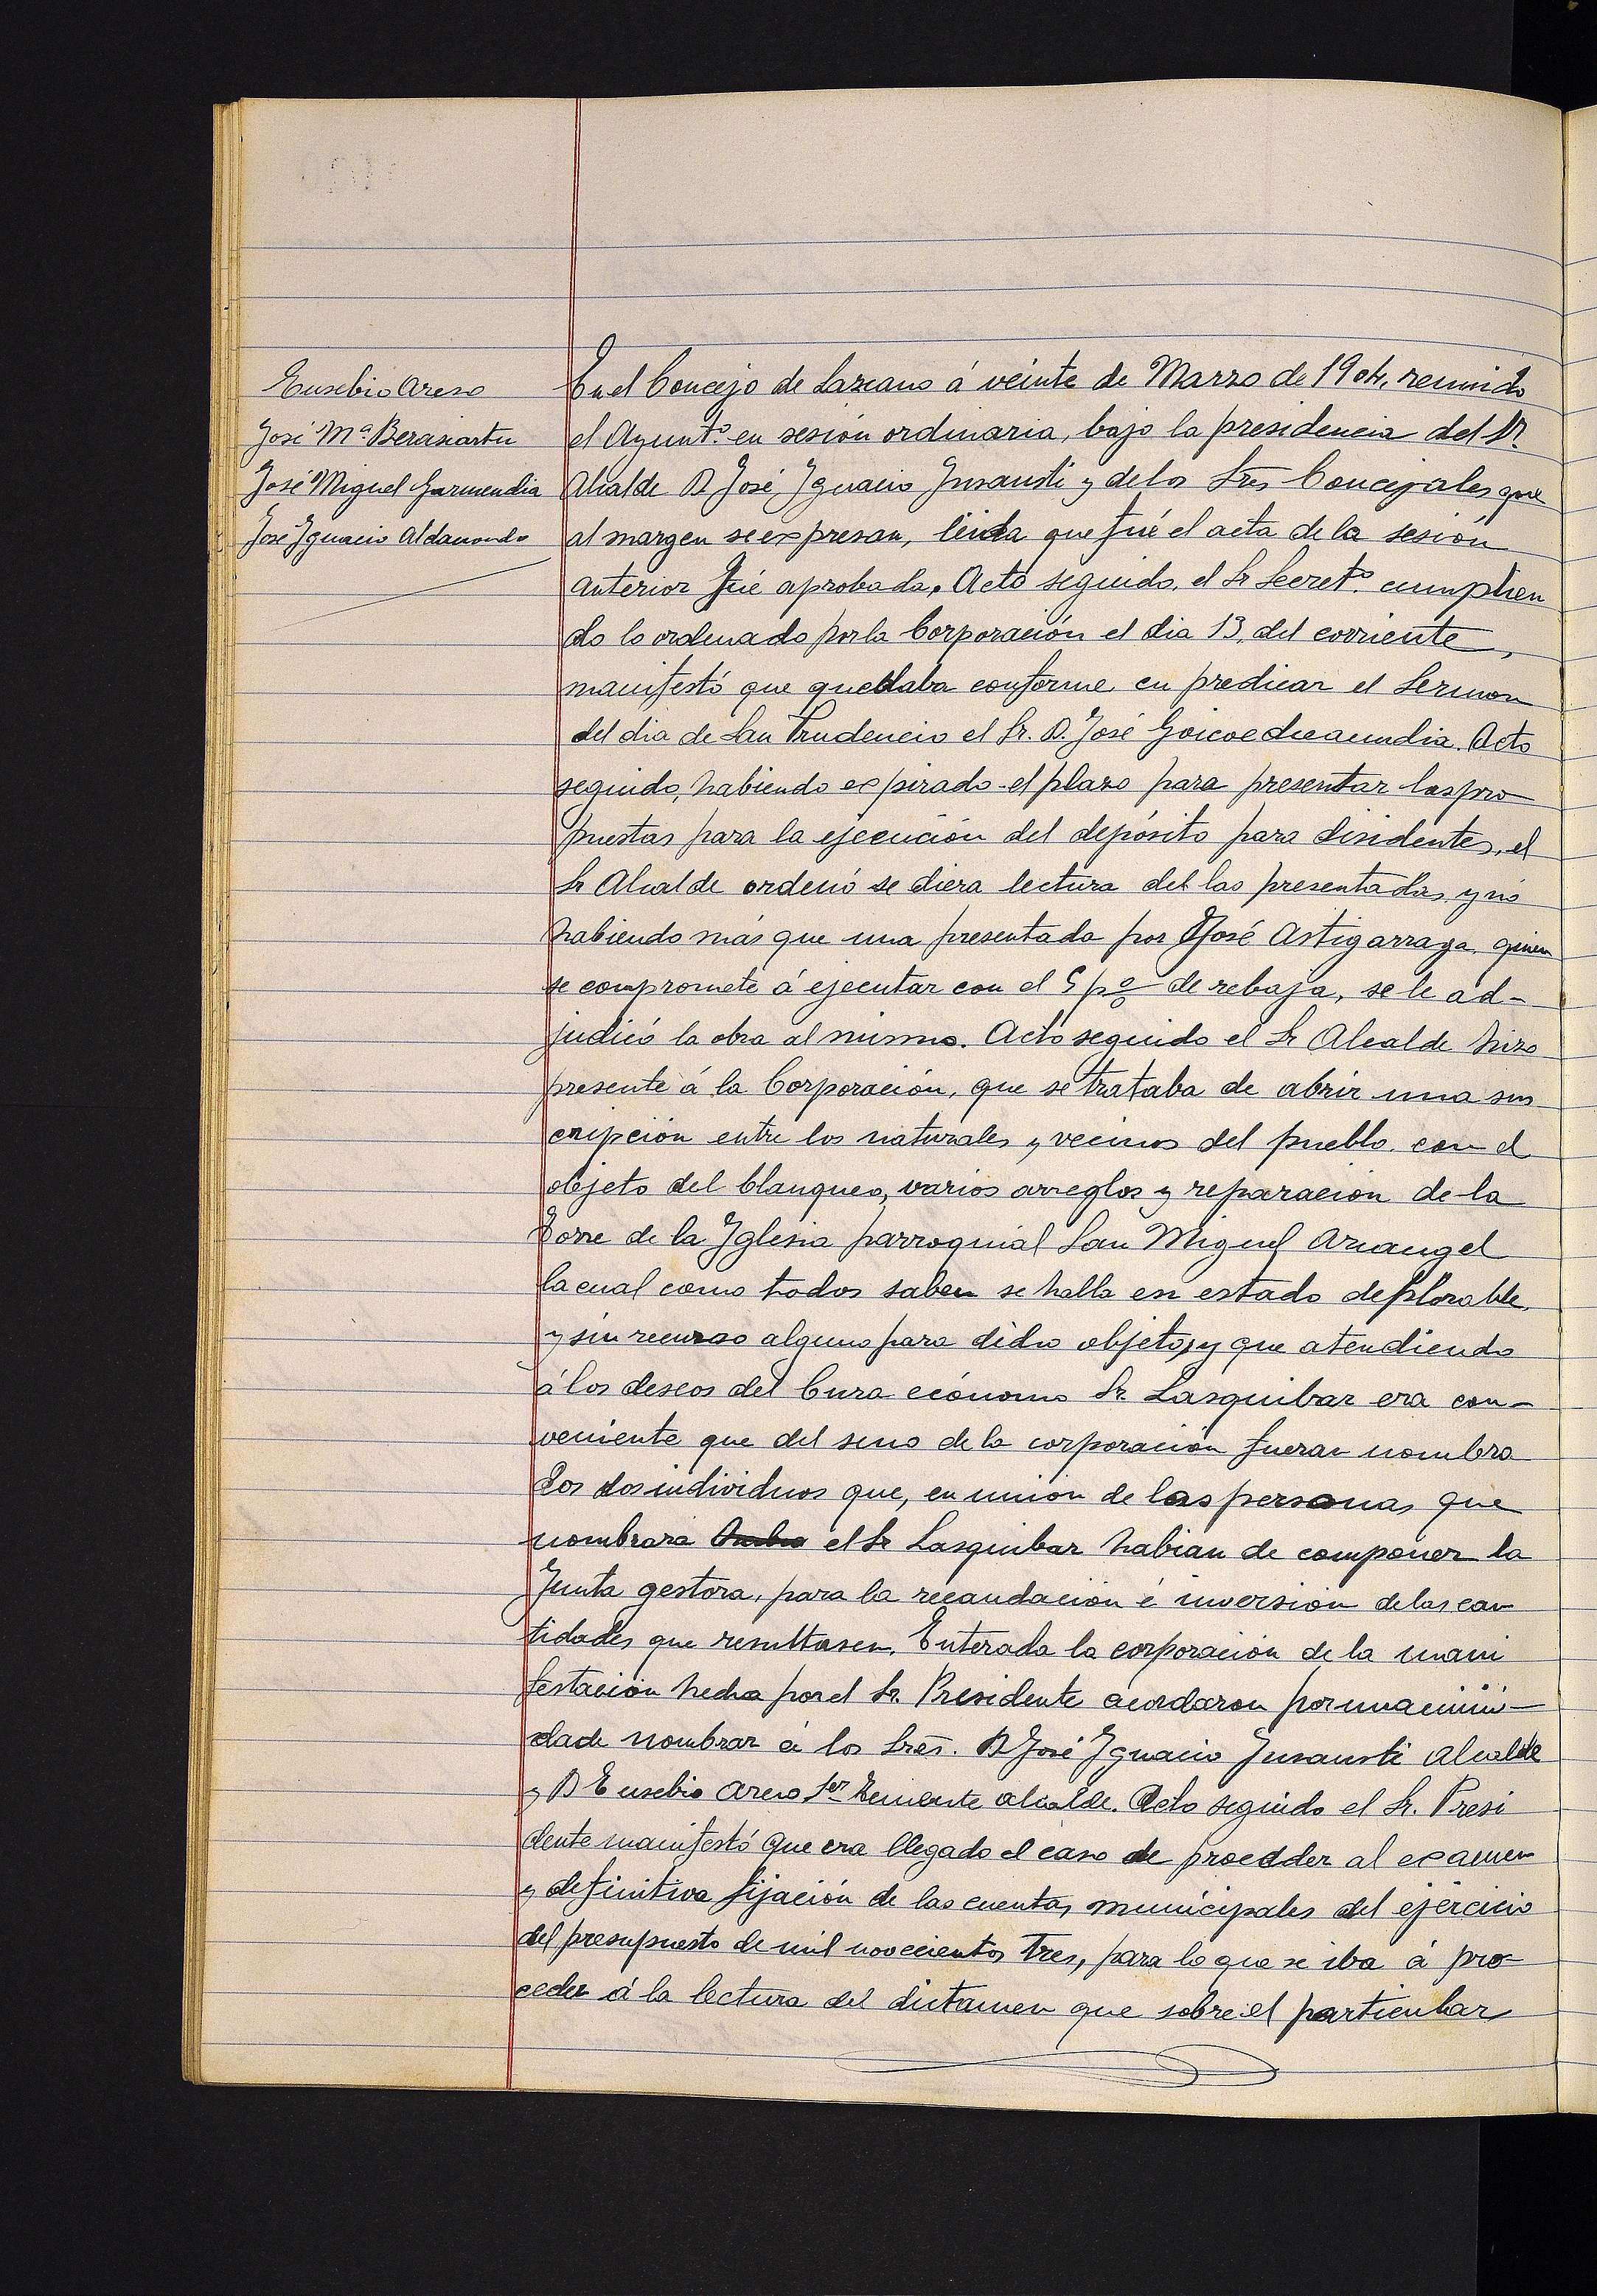 Eusebio Areso
José Mª Berasiartu
José Miguel Garmendia
José Ignacio Aldasondo
En el Concejo de Lazcano á veinte de Marzo de 1904, reunido
el Ayuntº en sesión ordinaria, bajo la presidencia del Sr.
Alcalde D José Ignacio Insausti y de los Sres Concejales que
al margen se expresan, leida que fué el acta de la sesión
anterior fué aprobada. Acto seguido, el Sr Secretº cumplien
do lo ordenado por la Corporación el dia 13, del corriente,
manifestó que quedaba conforme en predicar el Sermon
del dia de San Prudencio el Sr. D. José Goicoecheaundia. Acto
seguido, habiendo expirado el plazo para presentar las pro
puestas para la ejecución del depósito para disidentes, el
Sr Alcalde ordenó se diera lectura del las presentadas, y nó
habiendo más que una presentada por José Astigarraga, quien
se compromete á ejecutar con el 5 pº de rebaja, se le ad-
judicó la obra al mismo. Acto seguido el Sr Alcalde hizo
presente á la Corporación, que se trataba de abrir una sus
cripción entre los naturales y vecinos del pueblo con el
objeto del blanqueo, varios arreglos y reparación de la
Torre de la Iglesia parroquial San Miguel Arcangel
la cual como todos saben se halla en estado deplorable,
y sin recurso alguno para dicho objeto, y que atendiendo
á los deseos del Cura ecónomo Sr. Lasquibar era con-
veniente que del seno de la corporación fueran nombra
dos dos individuos que, en unión de las personas que
nombrara el Sr Lasquibar habian de componer la
Junta gestora, para la recaudación é inversión de las can
tidades que resultasen. Enterada la corporación de la mani
festación hecha por el Sr. Presidente acordaron por unanimi-
dade nombrar á los Sres. D José Ignacio Insausti Alcalde
y D Eusebio Areso 1er Teniente alcalde. Acto seguido el Sr. Presi
dente manifestó que era llegado el caso de proceder al examen
y definitiva fijación de las cuentas municipales del ejercicio
del presupuesto de mil novecientos tres, para lo que se iba á pro-
ceder á la lectura del dictamen que sobre el particular